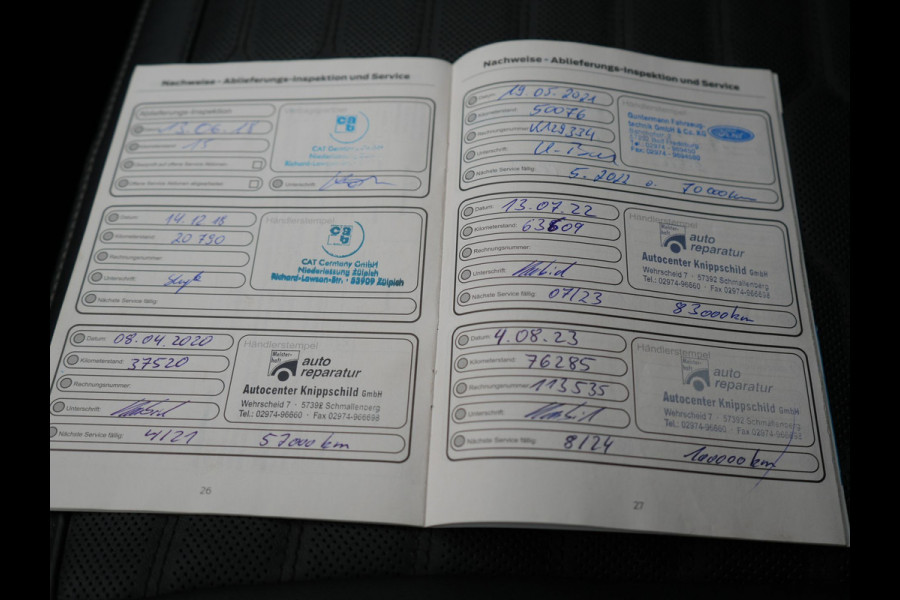 Nachweise - Ablieferungs-Inspektion und Service
Ablieferungs-Inspektion
Datum: 13.06.18
Kilometerstand: 15
Unterschrift:
cab
CAT Germany GmbH
Niederlassung Zülpich
Datum: 14.12.18
Kilometerstand: 20790
Rechnungsnummer:
Unterschrift:
Nächste Service fällig:
Händlerstempel
cab
CAT Germany GmbH
Niederlassung Zülpich
Richard-Lawson-Str. · 53909 Zülpich
Datum: 08.04.2020
Kilometerstand: 37520
Rechnungsnummer:
Unterschrift:
Nächste Service fällig: 4/21 57000 km
Händlerstempel
Meisterhaft
auto
reparatur
Autocenter Knippschild GmbH
Wehrscheid 7 · 57392 Schmallenberg
Tel.: 02974-96860 · Fax 02974-966698
26
Nachweise - Ablieferungs-Inspektion und Service
Datum: 19.05.2021
Kilometerstand: 50076
Rechnungsnummer:
Unterschrift:
Nächste Service fällig: 5.2022 o. 70000km
Händlerstempel
Guntermann Fahrzeug-
technik GmbH & Co. KG
Ford
Datum: 13.07.22
Kilometerstand: 63609
Rechnungsnummer:
Unterschrift:
Nächste Service fällig: 07/23 83000km
Händlerstempel
Meisterhaft
auto
reparatur
Autocenter Knippschild GmbH
Wehrscheid 7 · 57392 Schmallenberg
Tel.: 02974-96860 · Fax 02974-966698
Datum: 4.08.23
Kilometerstand: 76285
Rechnungsnummer: 113535
Unterschrift:
Nächste Service fällig: 8/24 100000 km
Händlerstempel
auto
reparatur
Autocenter Knippschild GmbH
Wehrscheid 7 · 57392 Schmallenberg
Tel.: 02974-96860 · Fax 02974-966698
27